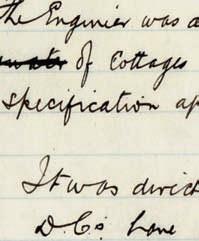 The Engineer was a
of Cottages
specification ap
It was direct
D. Cs. have